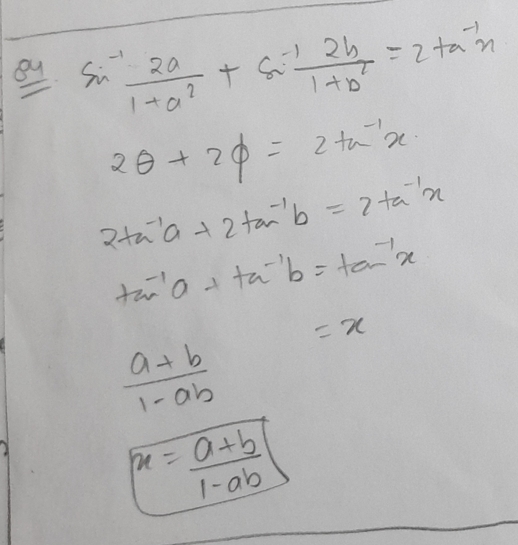 Q4. Sin⁻¹ 2a/1+a² + Si⁻¹ 2b/1+b² = 2 ta⁻¹x
2θ + 2φ = 2 ta⁻¹x.
2ta⁻¹a + 2tan⁻¹b = 2ta⁻¹x
tan⁻¹a + tan⁻¹b = tan⁻¹x
a+b/1-ab = x
x = a+b/1-ab